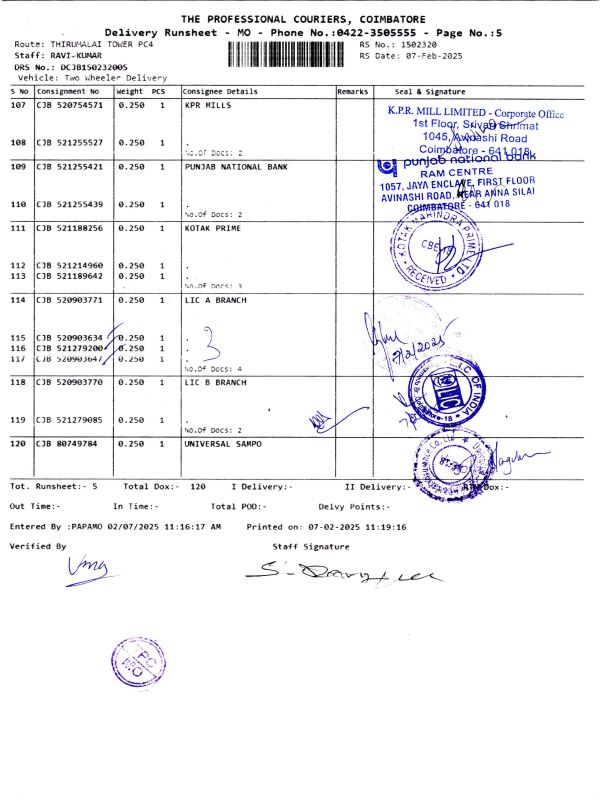 THE PROFESSIONAL COURIERS, COIMBATORE
Delivery Runsheet - MO - Phone No.:0422-3505555 - Page No.:5
Route: THIRUMALAI TOWER PC4
RS No.: 1502320
Staff: RAVI-KUMAR
RS Date: 07-Feb-2025
DRS No.: DCJB150232005
Vehicle: Two Wheeler Delivery
S No Consignment No Weight PCS Consignee Details Remarks Seal & Signature
107 CJB 520754571 0.250 1 KPR MILLS
K.P.R. MILL LIMITED - Corporate Office
1st Floor, Srivari Shrimat
1045, Avinashi Road
Coimbatore - 641 018
108 CJB 521255527 0.250 1 .
No.Of Docs: 2
109 CJB 521255421 0.250 1 PUNJAB NATIONAL BANK
punjab national bank
RAM CENTRE
1057, JAYA ENCLAVE, FIRST FLOOR
AVINASHI ROAD, NEAR ANNA SILAI
COIMBATORE - 641 018
110 CJB 521255439 0.250 1 .
No.Of Docs: 2
111 CJB 521188256 0.250 1 KOTAK PRIME
KOTAK MAHINDRA PRIME LTD
CBE-18
RECEIVED
112 CJB 521214960 0.250 1 .
113 CJB 521189642 0.250 1 .
No.Of Docs: 3
114 CJB 520903771 0.250 1 LIC A BRANCH
115 CJB 520903634 0.250 1 .
116 CJB 521279200 0.250 1 .
117 CJB 520903647 0.250 1 .
3
7/2/2025
No.Of Docs: 4
118 CJB 520903770 0.250 1 LIC B BRANCH
LIC OF INDIA
LIC
119 CJB 521279085 0.250 1 .
No.Of Docs: 2
120 CJB 80749784 0.250 1 UNIVERSAL SAMPO
Tot. Runsheet:- 5 Total Dox:- 120 I Delivery:- II Delivery:- Dox:-
Out Time:- In Time:- Total POD:- Delvy Points:-
Entered By :PAPAMO 02/07/2025 11:16:17 AM Printed on: 07-02-2025 11:19:16
Verified By Staff Signature
PC
MO